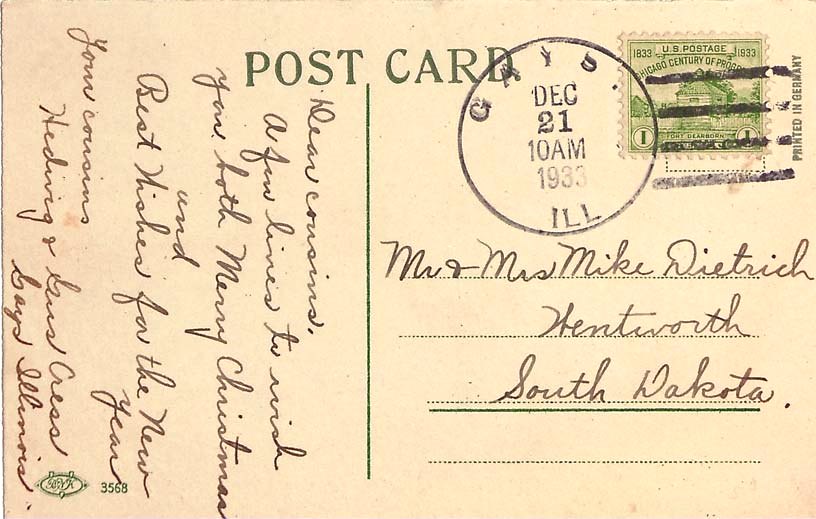 POST CARD
Dear cousins.
A few lines to wish
you both Merry Christmas
and
Best Wishes for the New
Year
Your cousins
Hedwig & Gus Cress
Gays Illinois.
3568
GAYS.
DEC
21
10AM
1933
ILL
1833 U.S. POSTAGE 1933
CHICAGO CENTURY OF PROGRESS
FORT DEARBORN
1 1
PRINTED IN GERMANY
Mr & Mrs Mike Dietrich
Wentworth
South Dakota.